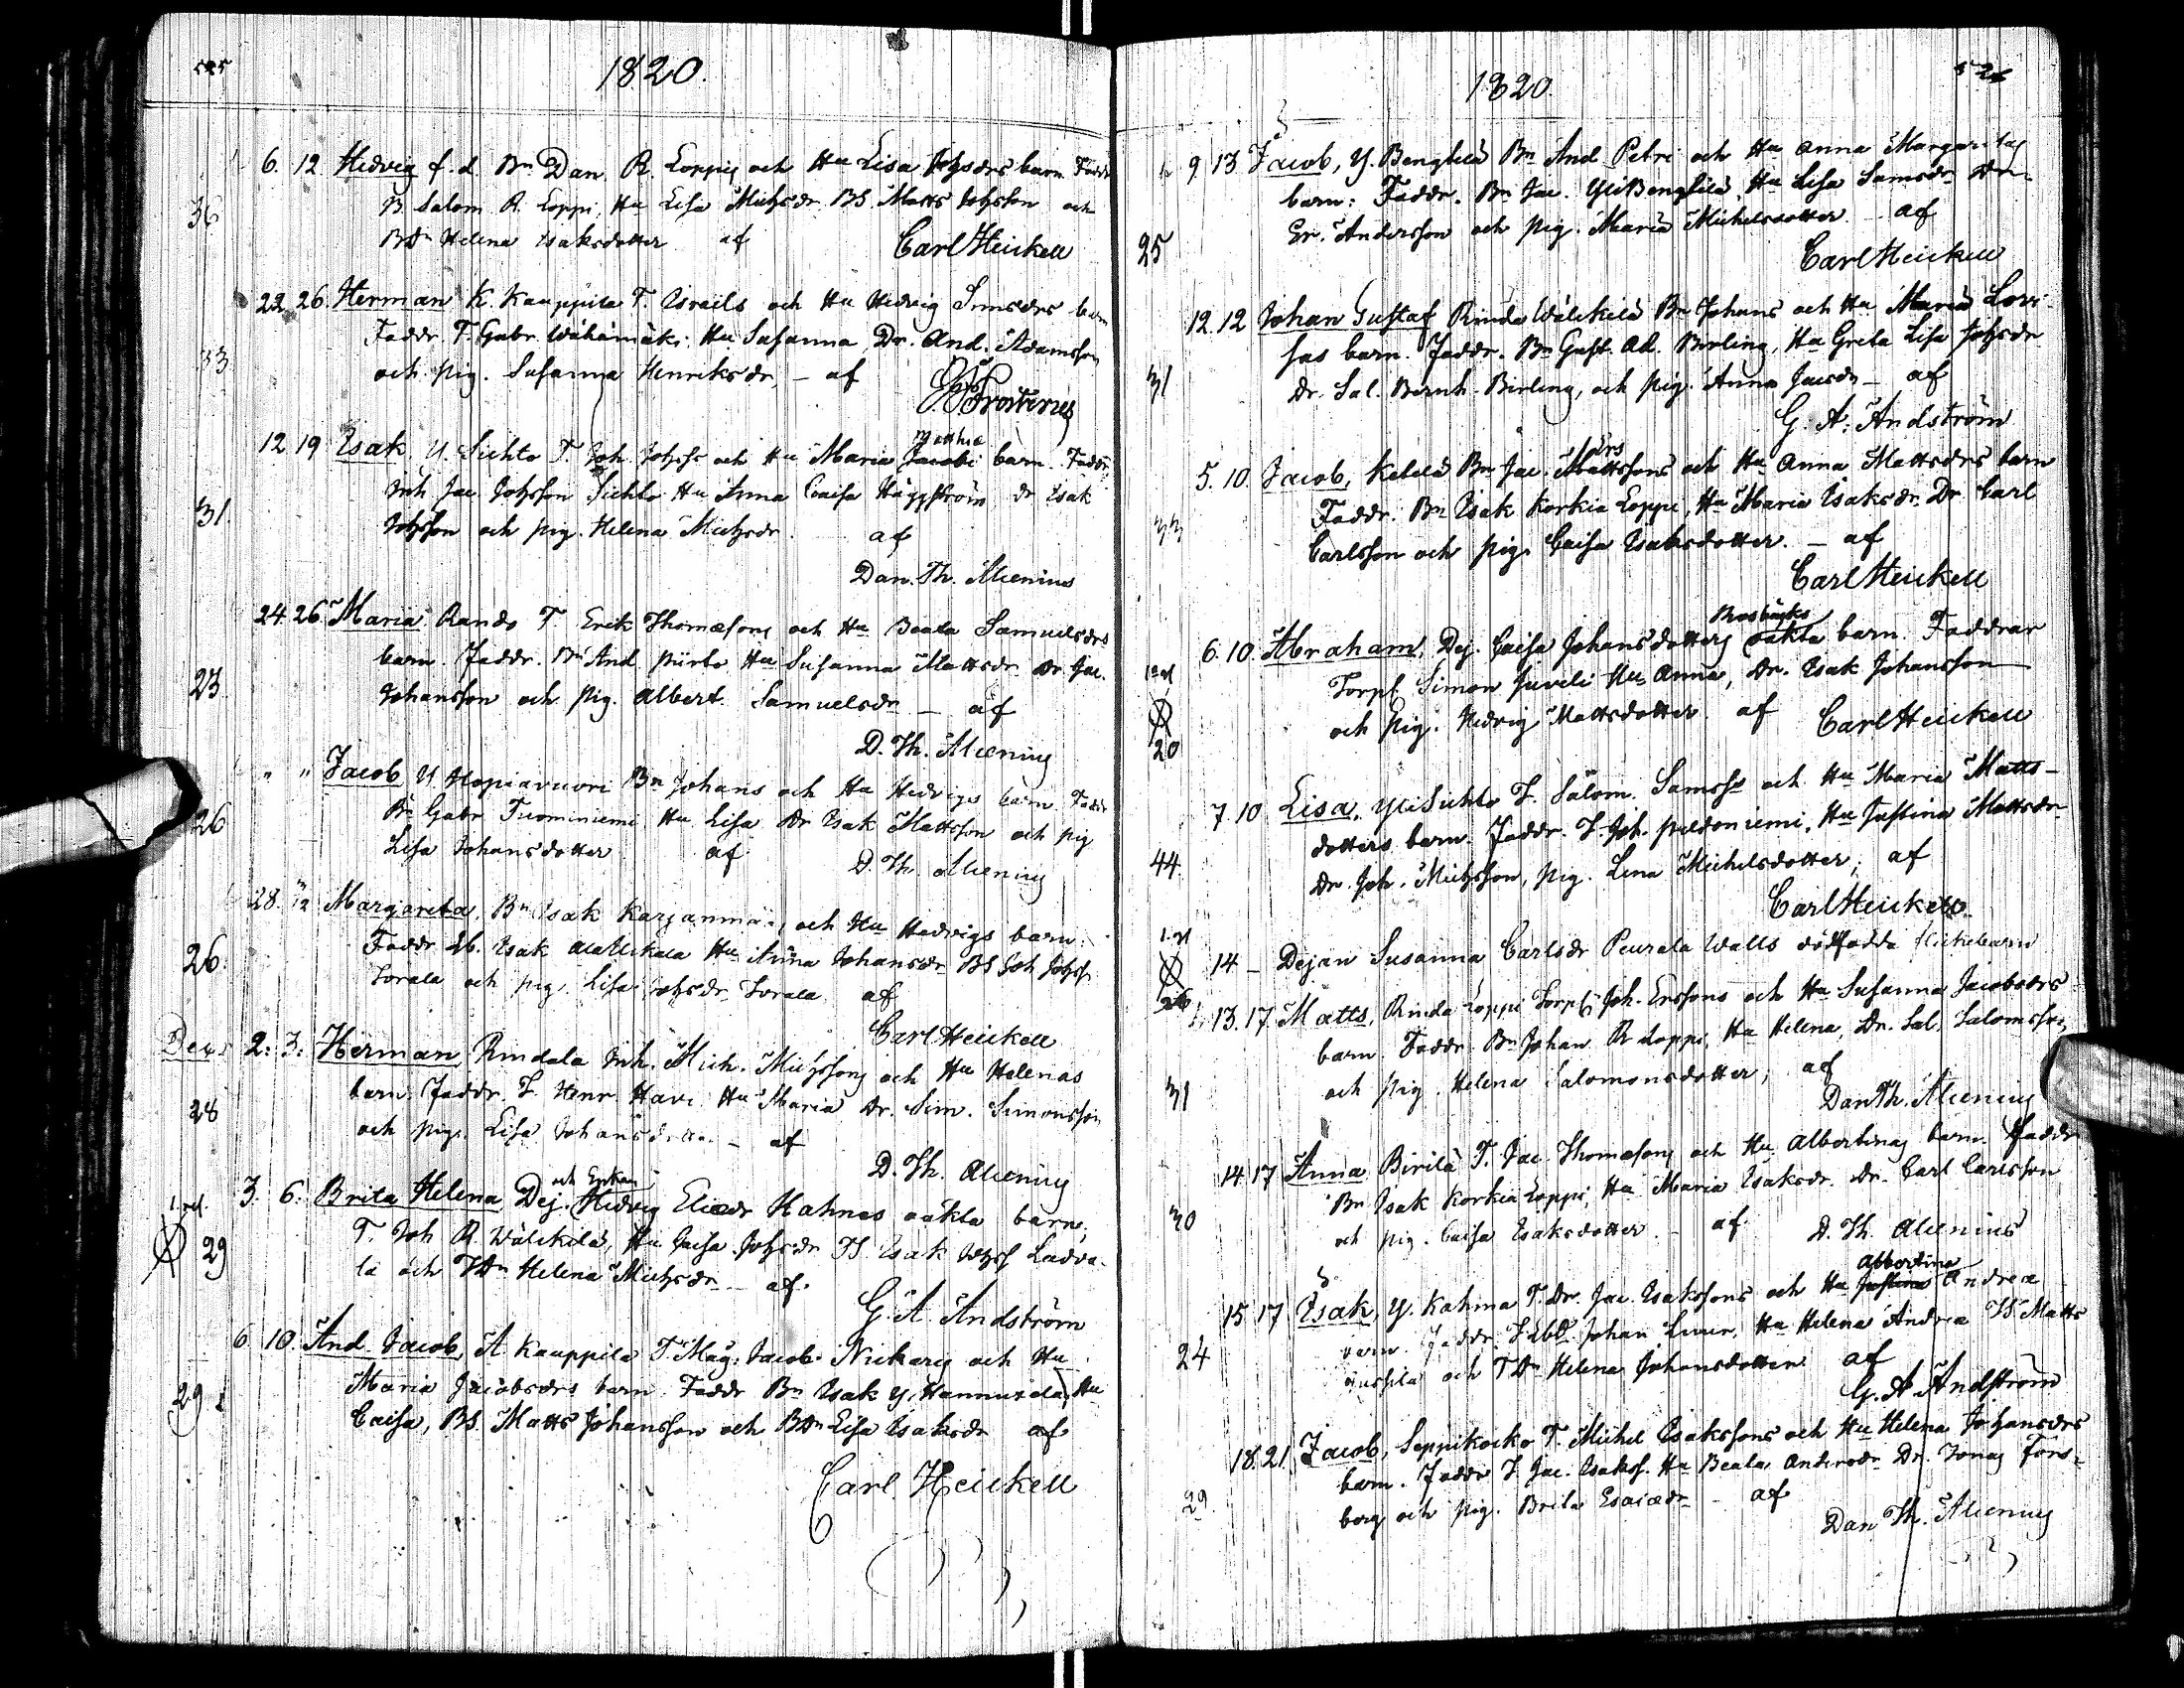 525
1820.
6. 12 Hedvig f. d. Bn Dan. R. Loppis och Hu Lisa Johsdrs barn Faddr
36 B. Salom. R. Loppi, Hu Lisa Michsdr BS. Matts Johsson och
BDr Helena Isaksdotter af Carl Heickell
22 26. Herman K. Kauppila T. Israels och Hu Hedvig Simsdrs barn
33 Faddr. T. Gabr. Wähämäki Hu Susanna Dr. And. Adamsson
och pig. Susanna Henriksdr, – af Frosterus
12 19 Isak U. Sichto T. Joh. Johss och Hu Maria Jacobi Matthiæ barn. Faddr.
31. Inh Jac. Johsson Sichto Hu Anna Caisa Häggström dr Isak
Johsson och pig. Helena Michsdr af
Dan. Th. Alcenius
24 26 Maria Rando T Erik Thomæsons och Hu Beata Samuelsdrs
23 barn. Faddr. Bn And. Piirto Hu Susanna Mattsdr Dr Jac.
Johansson och pig. Albert. Samuelsdr – af
D. Th. Alcenius
" " Jacob U Hopiavuori Bn Johans och Hu Hedvigs barn Faddr
26 Bn Gabr Tuominiemi Hu Lisa Dr Isak Mattsson och pig
Lisa Johansdotter af D. Th. Alcenius
28. Margareta, Bn Isak Karjanmä, och Hu Hedvigs barn.
26. Faddr. Isak Hu Anna Johansdr BS Joh Johss
Sorala och pig. Lisa Johsdr Sorala af
Carl Heickell
Decs 2. 3. Herman Rindala Inh. Mich. Michssons och Hu Helenas
28 barn. Faddr. T. Henr. Havi Hu Maria Dr. Sim. Simonsson
och pig. Lisa Johansdotter – af
D. Th. Alcenius
3. 6. Brita Helena Dej. och Enkan Hedvig Eliædr Kahnas oäkta barn,
29 T. Joh R. Wälikilä, Hu Caisa Johsdr TS. Isak Johss Ladva-
la och TDr Helena Michsdr – af.
G. A. Andström
6 10. And. Jacob, A Kauppila T. Mag. Jacob och Hu
29 Maria Jacobsdrs barn. Faddr Bn Isak Y. Hannuxela, Hu
Caisa, BS. Matts Johansson och BDr Lisa Isaksdr af
Carl Heickell
526
1820.
9. 13 Jacob, Y. Bengtilä Bn And. Petri och Hu Anna Margaretas
barn: Faddr. Bn Jac. Yli Bengtilä Hu Lisa Samsdr Dr.
25 Er. Andersson och pig. Maria Michelsdotter – af
Carl Heickell
12. 12 Johan Gustaf Rinda Wälikilä Bn Johans och Hu Maria Lovi-
sas barn. Faddr. Bn Gust. Ad. Birling, Hu Greta Lisa Johsdr
31 Dr. Sal. Bernh. Birling, och pig. Anna Jacsdr – af
G. A. Andström
5. 10. Jacob, Ketelä Bn Jac. Mattssons Ers och Hu Anna Mattsdrs barn
33 Faddr. Bn Isak Korkia Loppi, Hu Maria Isaksdr. Dr Carl
Carlsson och pig. Caisa Isaksdotter. – af
Carl Heickell
6. 10. Abraham, Dej. Caisa Johansdotters oäkta barn. Faddrar
Torp. Simon Juveli Hu Anna, Dr. Isak Johansson
20 och pig. Hedvig Mattsdotter af Carl Heickell
7. 10 Lisa, Yli Sichto T. Salom. Samss och Hu Maria Matts-
dotters barn. Faddr. T. Joh. Peldoniemi, Hu Justina Mattsdr
44. Dr. Joh. Michsson, pig. Lena Michelsdotter; af
Carl Heickell
14 – Dejan Susanna Carlsdr Peurala Walls dödfödda flickebarn
26
13. 17. Matts, Rinda Loppi Torp. Joh. Erssons och Hu Susanna Jacobsdrs
barn. Faddr. Bn Johan R Loppi, Hu Helena, Dr. Sal. Salomsson
31 och pig. Helena Salomonsdotter, af
Dan Th. Alcenius
14 17 Anna Birilä T. Jac. Thomæsons och Hu Albertinas barn. Faddr
30 Bn Isak Korkia Loppi, Hu Maria Isaksdr. Dr. Carl Carlsson
och pig. Caisa Isaksdotter. – af D. Th. Alcenius
15 17 Isak, Y. Kahma T. Dr. Jac. Isakssons och Hu Justina Albertina Andreæ
24 barn. Faddr. Johan Hu Helena Andreæ TS Matts
och TDr Helena Johansdotter af
G. A. Andström
18. 21 Jacob, Seppikocko T. Michel Isakssons och Hu Helena Johansdrs
29. barn. Faddr T. Jac. Isakss. Hu Beata Andersdr Dr. Jonas Fors-
borg och pig. Brita Esaiædr – af
Dan Th. Alcenius